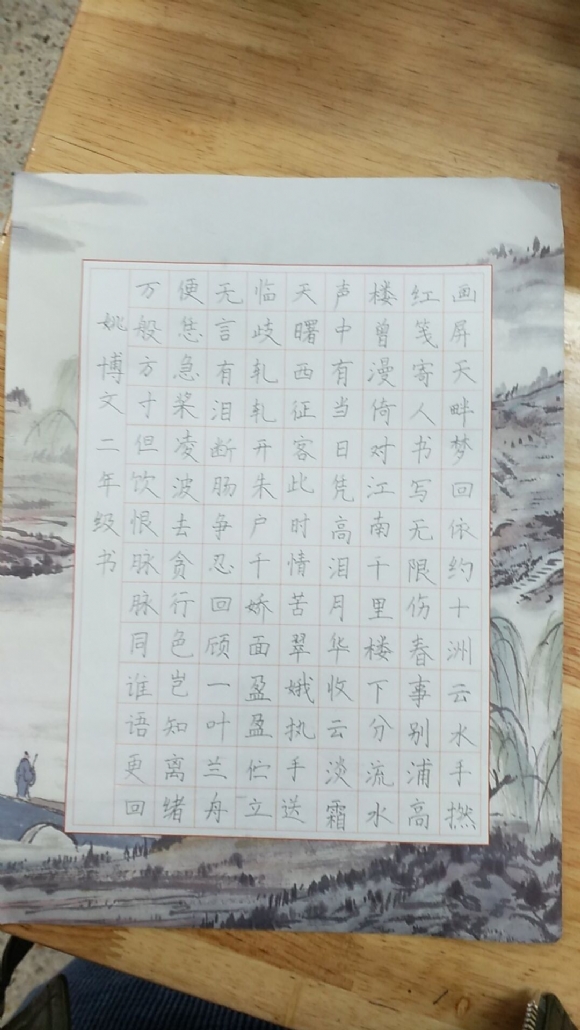 画屏天畔梦回依约十洲云水手撚
红笺寄人书写无限伤春事别浦高
楼曾漫倚对江南千里楼下分流水
声中有当日凭高泪月华收云淡霜
天曙西征客此时情苦翠娥执手送
临歧轧轧开朱户千娇面盈盈伫立
无言有泪断肠争忍回顾一叶兰舟
便恁急桨凌波去贪行色岂知离绪
万般方寸但饮恨脉脉同谁语更回
姚博文二年级书